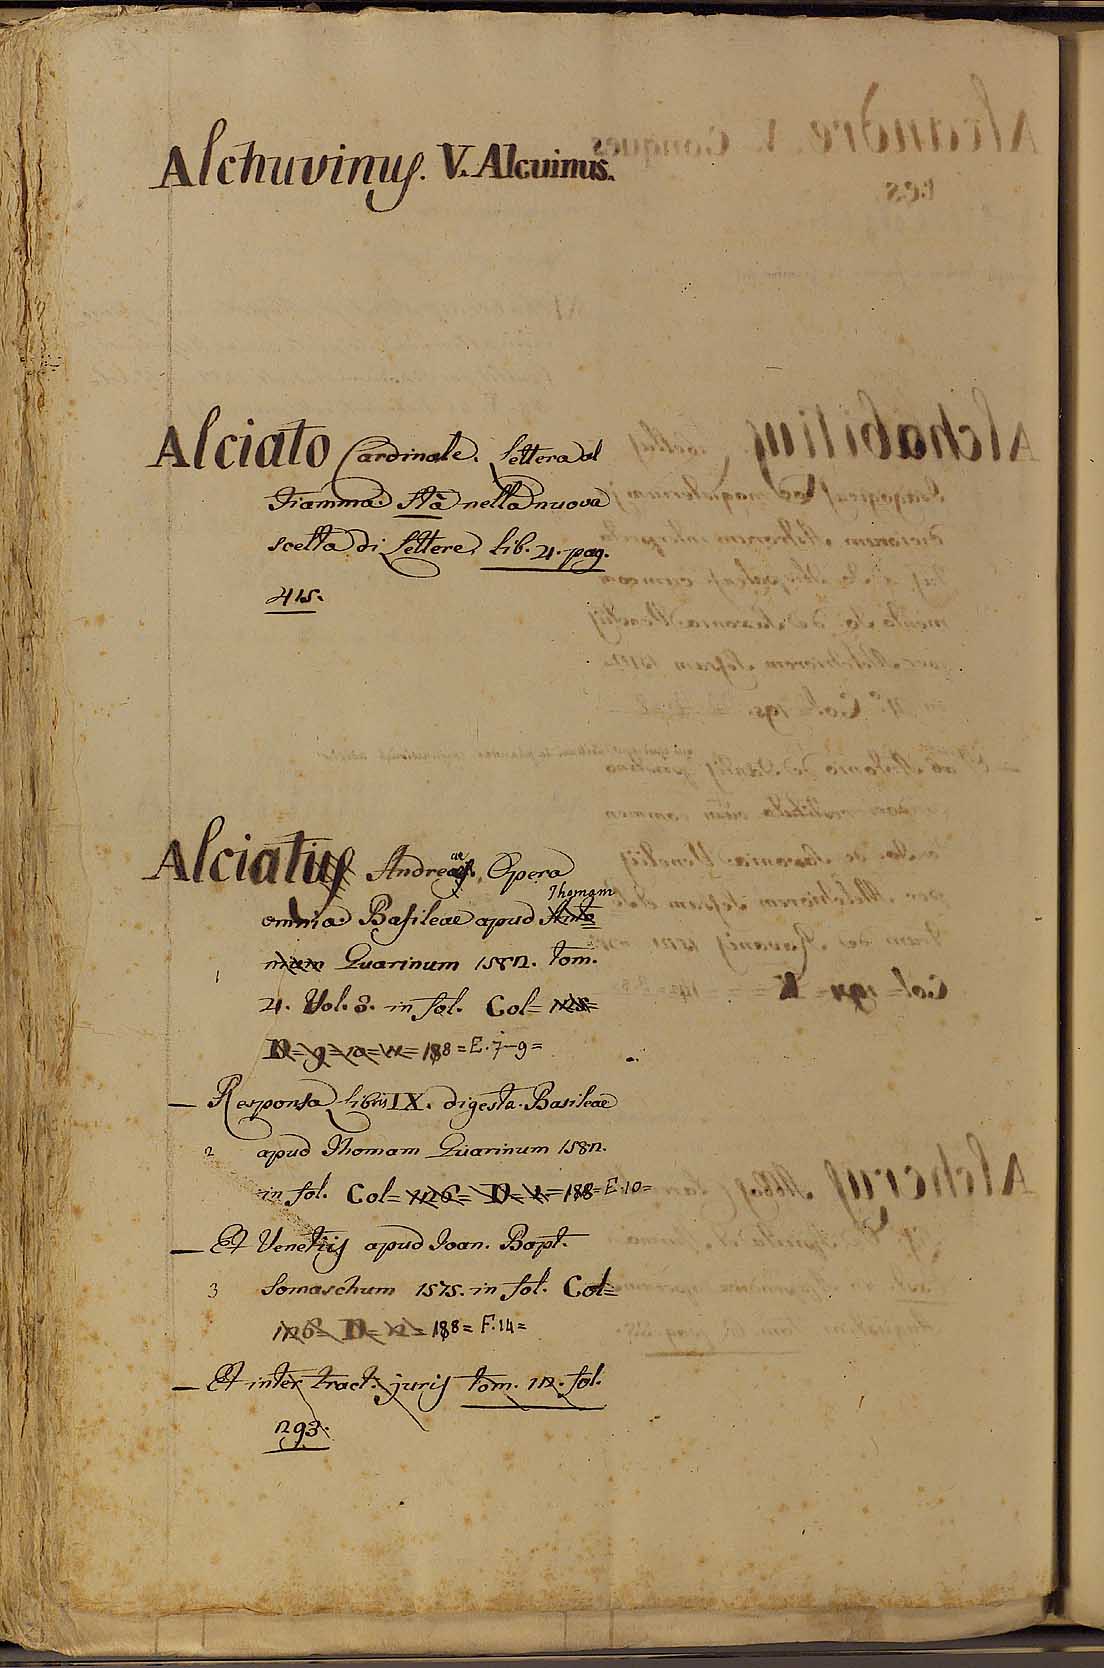 Alchuvinus. V. Alcuinus.
Alciato Cardinale. Lettera al
Fiamma. Stà nella nuova
scelta di Lettere. Lib. 4. pag.
415.
Alciatus Andreas ae, Opera
Thomam
omnia. Basileae apud Anto
nium Guarinum 1582. tom.
1
4. Vol. 3. in fol. Col=
188=E.7-9=
— Responsa libris IX. digesta. Basileae
2 apud Thomam Guarinum 1582.
in fol. Col= 126= D= 188=E.10=
— Et Venetiis apud Ioan. Bapt.
3 Somaschum 1575. in fol. Col=
126= D= 12= 188= F.14=
— Et inter tract. juris tom. 12. fol.
293.